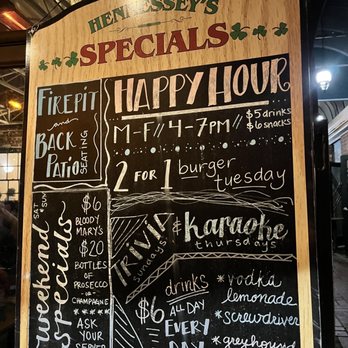 HENNESSEY'S
SPECIALS
FIREPIT
and
BACK
PATIO
SEATING
HAPPY HOUR
M-F // 4-7PM // $5 drinks
$6 snacks
2 FOR 1 burger
tuesday
weekend
specials
SAT
SUN
$6
BLOODY
MARY'S
$20
BOTTLES
OF
PROSECCO
OR
CHAMPAGNE
*****
ASK
YOUR
SERVER
TRIVIA
sundays
& karaoke
thursdays
$6 drinks
ALL DAY
EVERY
DAY
*vodka
lemonade
*screwdriver
*greyhound